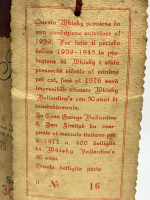 Questo Whisky proviene da
una produzione anteriore al
1939. Per tutto il periodo
bellico 1939-1945 la pro-
duzione di Whisky è stata
pressochè ridotta al minimo
per cui, fino al 1970 sarà
impossibile ottenere Whisky
Ballantine's con 30 anni di
invecchiamento.
La Casa George Ballantine
& Son Limited ha
al mercato italiano per
il 1971 n. 400 bottiglie
di Whisky Ballantine's
30 anni.
Questa bottiglia porta
il No 16